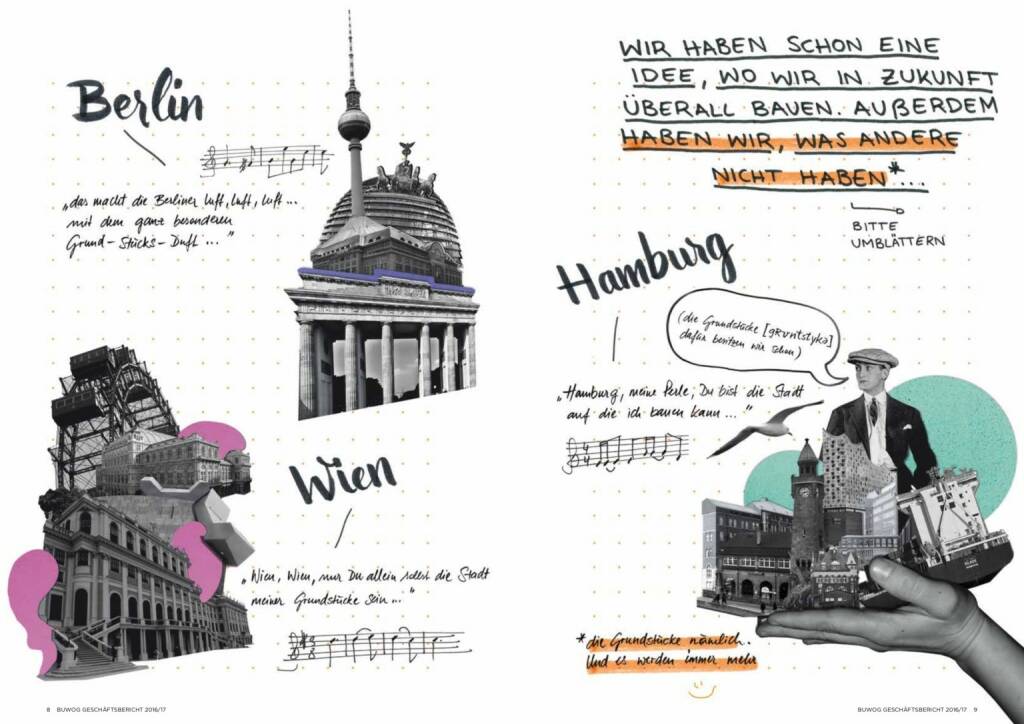 Berlin
„das macht die Berliner Luft, Luft, Luft ...
mit dem ganz besonderen
Grund-Stücks-Duft ..."
Wien
„Wien, Wien, nur Du allein sollst die Stadt
meiner Grundstücke sein ..."
8 BUWOG GESCHÄFTSBERICHT 2016/17
WIR HABEN SCHON EINE
IDEE, WO WIR IN ZUKUNFT
ÜBERALL BAUEN. AUßERDEM
HABEN WIR, WAS ANDERE
NICHT HABEN*...
BITTE
UMBLÄTTERN
Hamburg
(die Grundstücke [gʀʊntstʏkə]
dafür besitzen wir schon)
„Hamburg, meine Perle, Du bist die Stadt
auf die ich bauen kann ..."
*die Grundstücke nämlich.
Und es werden immer mehr
BUWOG GESCHÄFTSBERICHT 2016/17 9